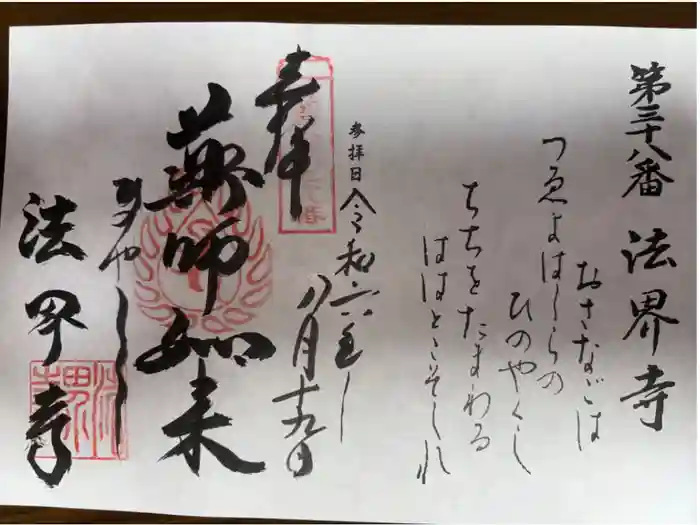 第三十八番 法界寺
おさなごは
ひのやくし
つゑよはしらの
ちちをたまわる
ははとこそしれ
参拝日 令和六年
八月十九日
奉拝
薬師如来
ひのやくし
法界寺